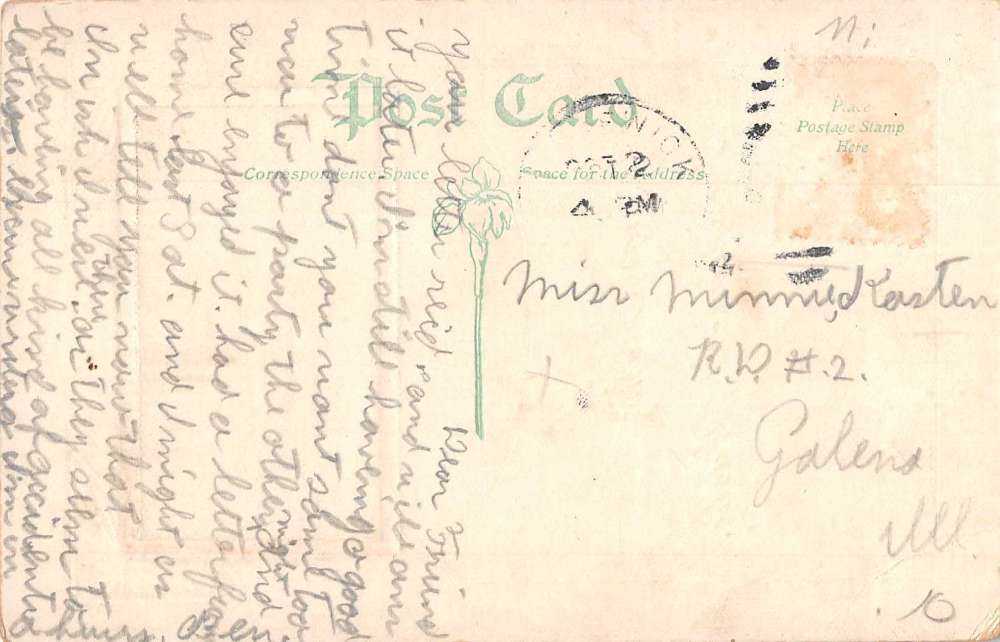 Post Card
Correspondence Space
Space for the Address
Place
Postage Stamp
Here
OCT 2
4 PM
Dear Friend
Your letter rec'd and will ans
it later Im still haveing a good
time dont you want some too
was to a party the other night and
sure enjoyed it. had a letter from
home last Sat. and I might as
well tell you now that
they seem to
be having all kind of accidents
Miss Minnie Kasten
R.D. #.2.
Galena
Ill.